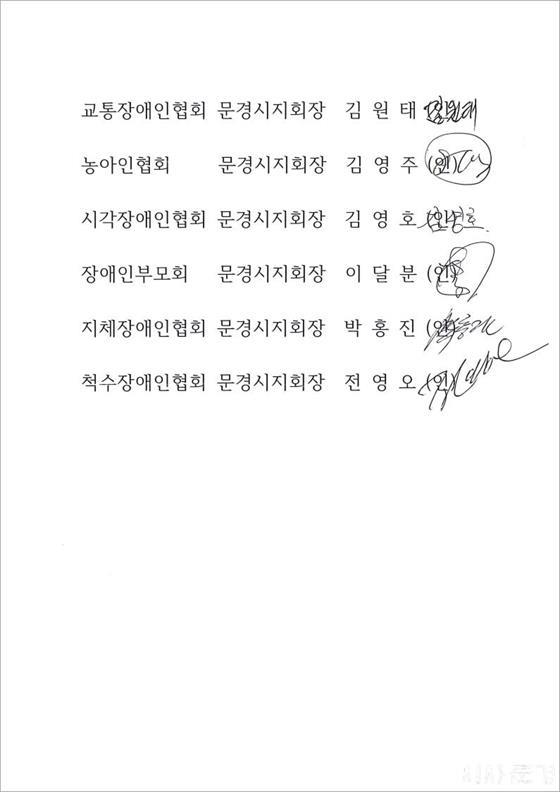 교통장애인협회 문경시지회장 김 원 태 김원태
농아인협회 문경시지회장 김 영 주 (인)
시각장애인협회 문경시지회장 김 영 호 (인) 김영호
장애인부모회 문경시지회장 이 달 분 (인)
지체장애인협회 문경시지회장 박 홍 진 (인)
척수장애인협회 문경시지회장 전 영 오 (인)